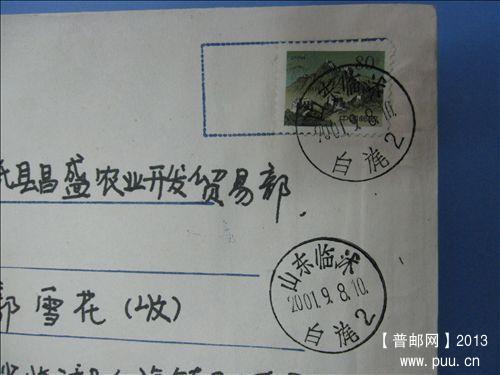 80
中国邮政
山东临沭
2001.9.8.10
白旄2
氏县昌盛农业开发贸易部
山东临沭
2001.9.8.10.
白旄2
郭雪花(收)
【普邮网】2013
www.puu.cn